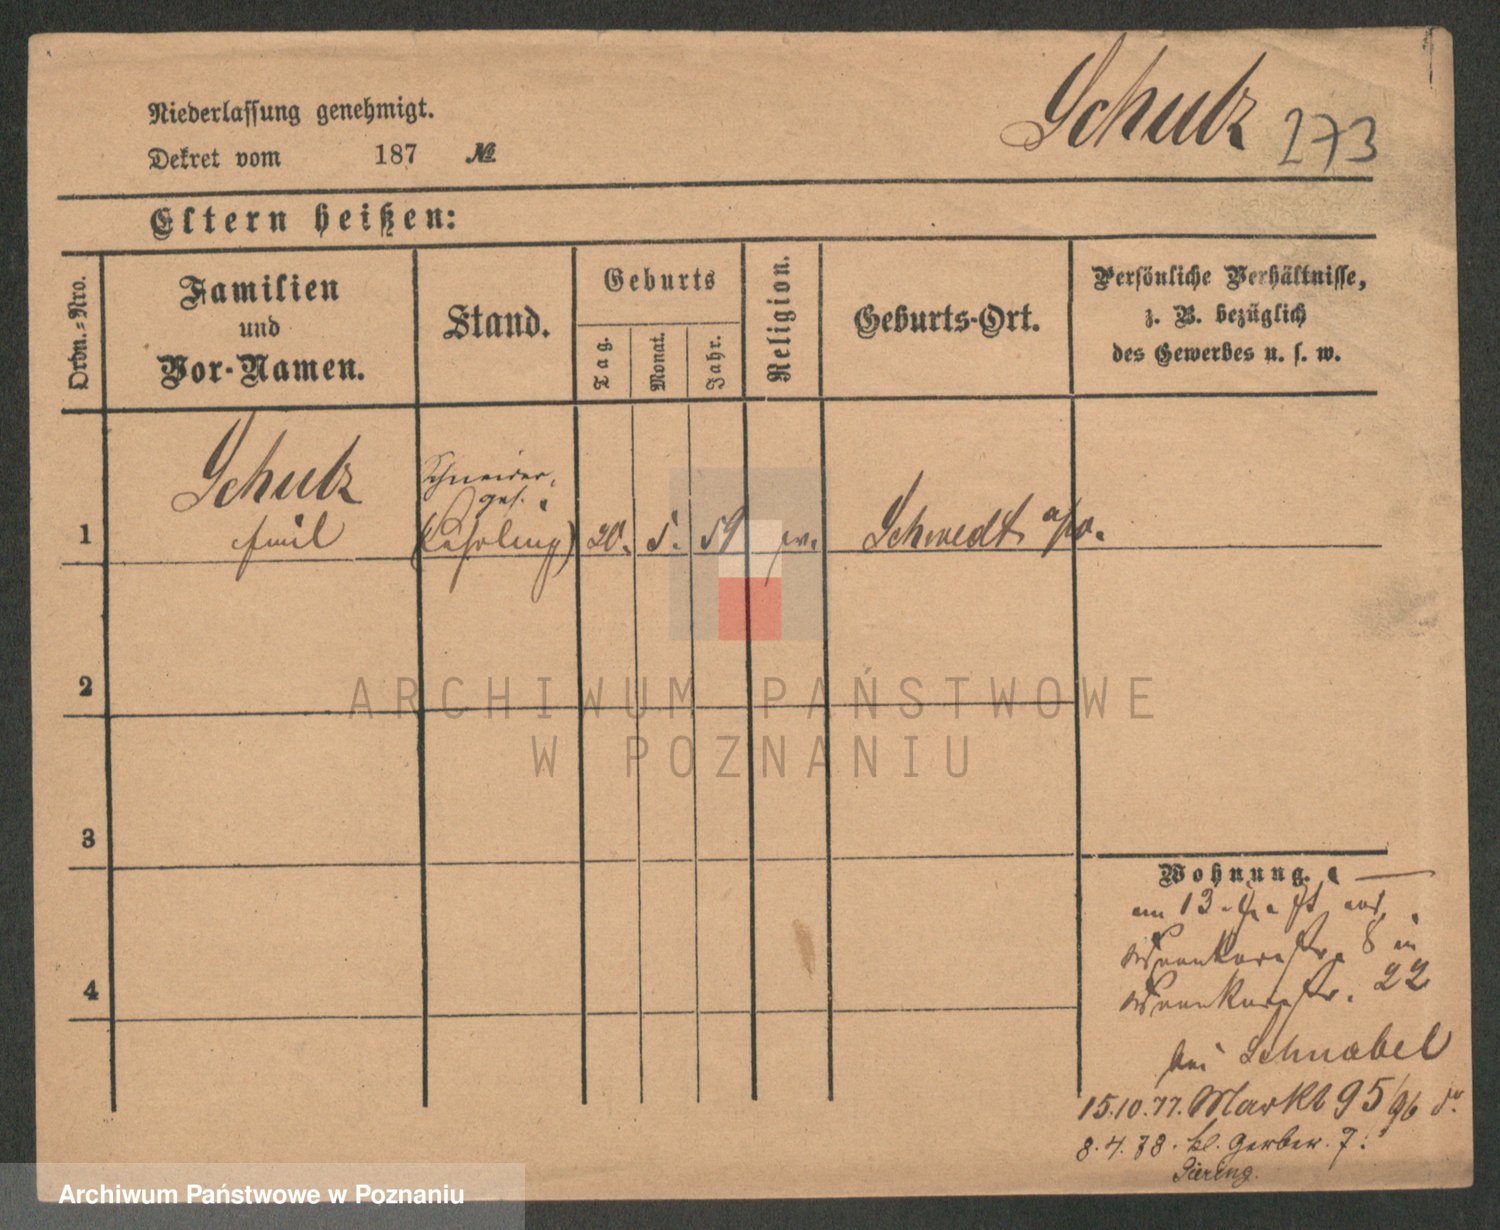 Schulz 273
Niederlassung genehmigt.
Dekret vom 187 №
Eltern heißen:
Ordn.-Nro.
Familien
und
Vor-Namen.
Stand.
Geburts
Tag.
Monat.
Jahr.
Religion.
Geburts-Ort.
Persönliche Verhältnisse,
z. B. bezüglich
des Gewerbes u. s. w.
Schulz
Schneider
ges.
1 Emil (Lehrling) 20. 5. 59 ev. Schwedt a/o.
2
ARCHIWUM PAŃSTWOWE
W POZNANIU
3
Wohnung.
am 13.
8 in
22
bei Schnabel
15.10.77. Markt 95/96 dr.
8.4.78. kl. Gerber. 7:
4
Archiwum Państwowe w Poznaniu